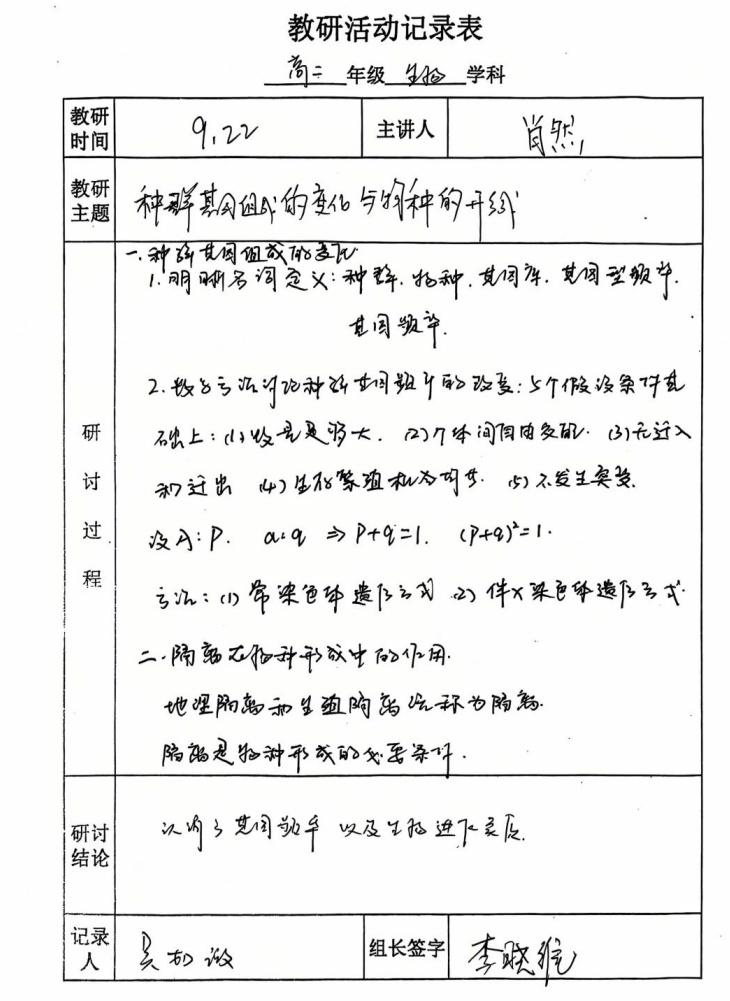 教研活动记录表
高二 年级 生物 学科
教研时间 9.22 主讲人 肖然
教研主题 种群基因组成的变化与物种的形成
研讨过程
一.种群基因组成的变化
1.明晰名词定义:种群.物种.基因库.基因型频率.
基因频率.
2.数学方法讨论种群基因频率的改变:5个假设条件基
础上:(1)数量足够大. (2)个体间自由交配. (3)无迁入
和迁出 (4)生存繁殖机会均等. (5)不发生突变.
设A:P. a:q ⇒ P+q=1. (P+q)²=1.
方法:(1)常染色体遗传方式 (2)伴X染色体遗传方式.
二.隔离在物种形成中的作用.
地理隔离和生殖隔离统称为隔离.
隔离是物种形成的必要条件.
研讨结论 基因频率以及生物进化实质.
记录人 吴 组长签字 李晓